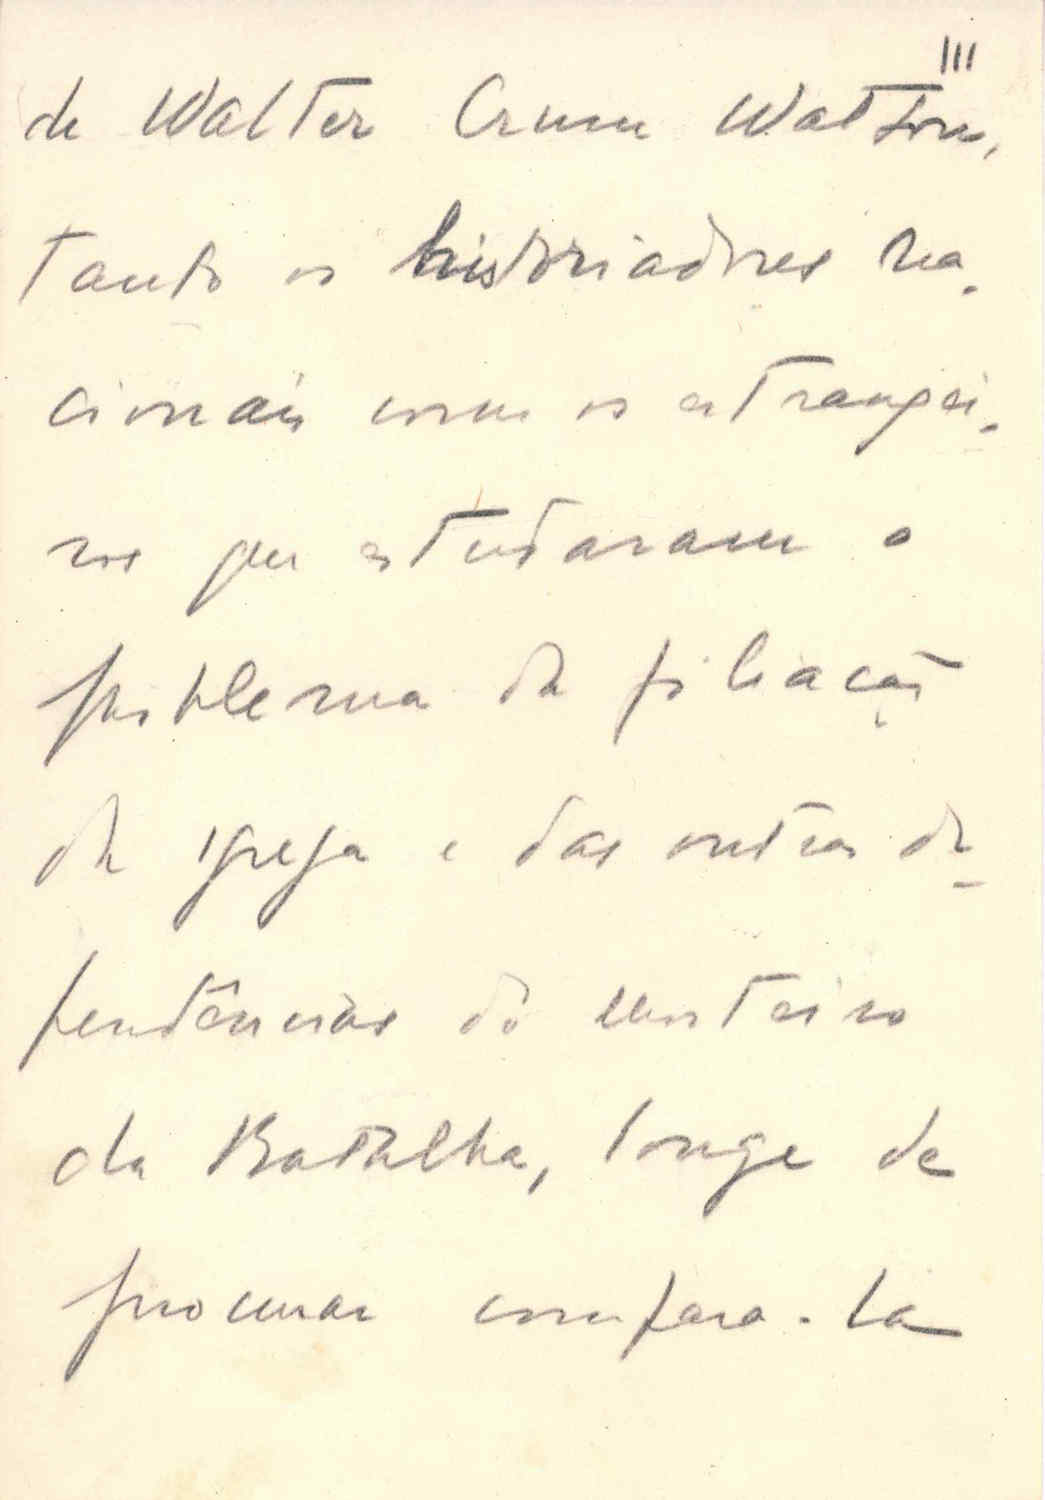 III
de Walter Crum Watson,
tanto os historiadores na-
cionais como os estrangei-
ros que estudaram o
problema da filiação
da igreja e das outras de-
pendências do Mosteiro
da Batalha, longe de
procurar compara-la